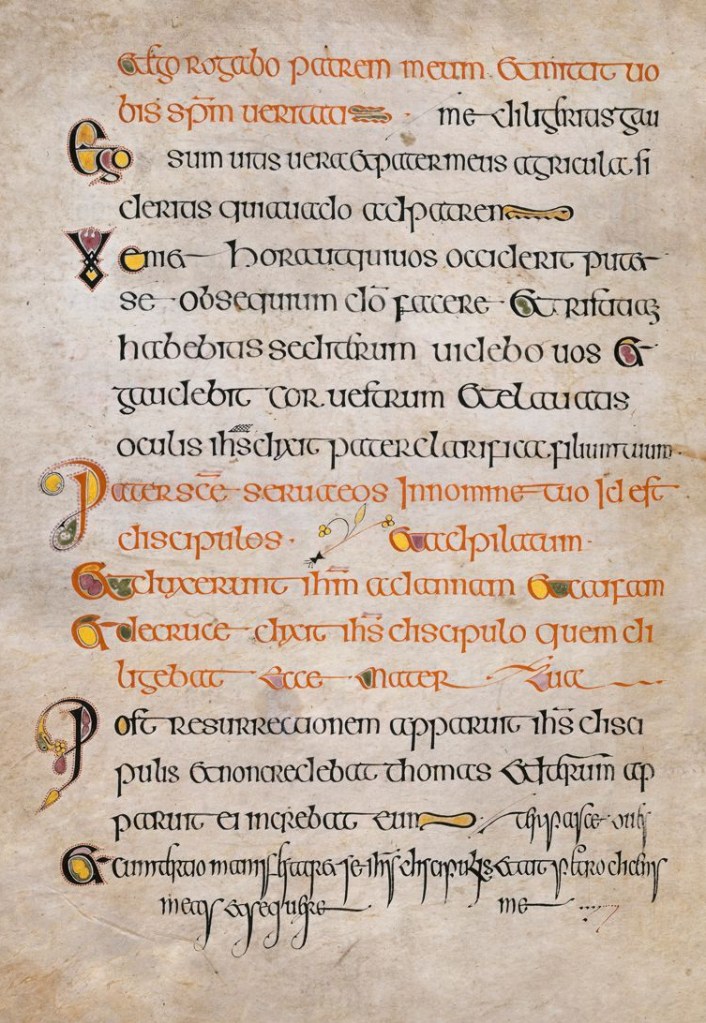 & ego rogabo patrem meum & mitat uo
bis spm ueritati · me diligeritis gau
Ego sum uitis uera & pater meus agricula si
deritis quia uado ad patrem
Venia& hora ut qui uos occiderit puta&
se obsequium do facere & tristitiam
habebitis sed iterum uidebo uos &
gaudebit cor uestrum & eleuatis
oculis ihs dixit pater clarifica filium tuum ·
Pater sce serua eos In nomine tuo Id est
discipulos · & ad pilatum ·
& duxerunt ihm ad annam & caifam
& de cruce dixit ihs discipulo quem di
ligebat Ecce Mater Tua
Post resurrectionem apparuit ihs disci
pulis & non credebat thomas & iterum ap
paruit ei increbat eum
& cum tertio manifestar& se ihs discipulis & ait petro
meas & sequere me